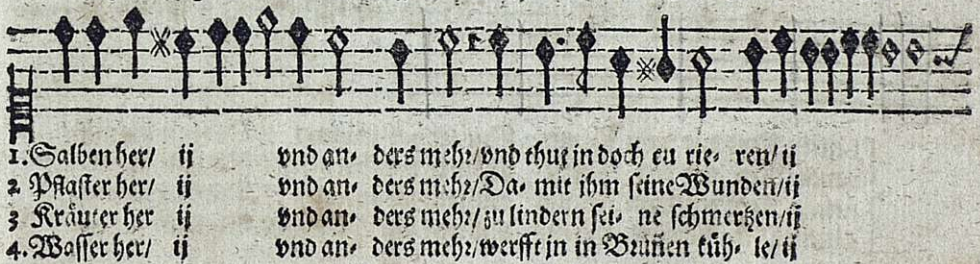 1. Salben her/ ij vnd an- ders mehr/vnd thut in doch eu rie- ren/ ij
2 Pflaster her/ ij vnd an- ders mehr/Da- mit jhm seine Wunden/ij
3 Kräuter her ij vnd an- ders mehr/zu lindern sei- ne schmertzen/ij
4. Wasser her/ ij vnd an- ders mehr/werfft jn in Brunen küh- le/ ij